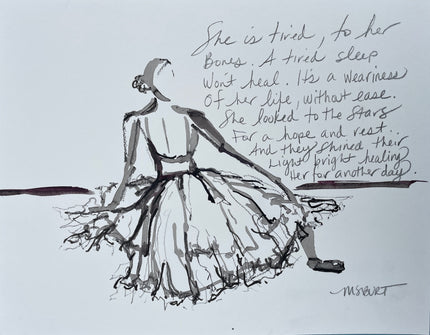 She is tired, to her
Bones. A tired sleep
Won't heal. It's a weariness
Of her life, without ease.
She looked to the Stars
For a hope and rest...
And they shined their
Light bright healing
Her for another day.
MSBURT